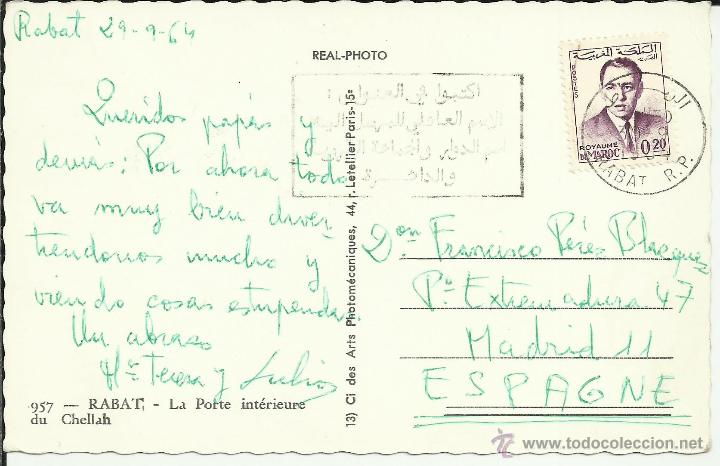 Rabat 29-9-64
REAL-PHOTO
Queridos papás y
demás: Por ahora todo
va muy bien diver-
tiendonos mucho y
viendo cosas estupendas.
Un abrazo
Mª Teresa y Julio
957 — RABAT, - La Porte intérieure
du Chellah
13) Ci des Arts Photomécaniques, 44, r. Letellier Paris-15e
اكتبوا في العنوان :
الاسم العائلي
والدائرة
المملكة المغربية
POSTES
ROYAUME
DU MAROC
0.20
RABAT R.P.
Don Francisco Perés Blasques
Pº Extremadura 47
Madrid 11
ESPAGNE
www.todocoleccion.net